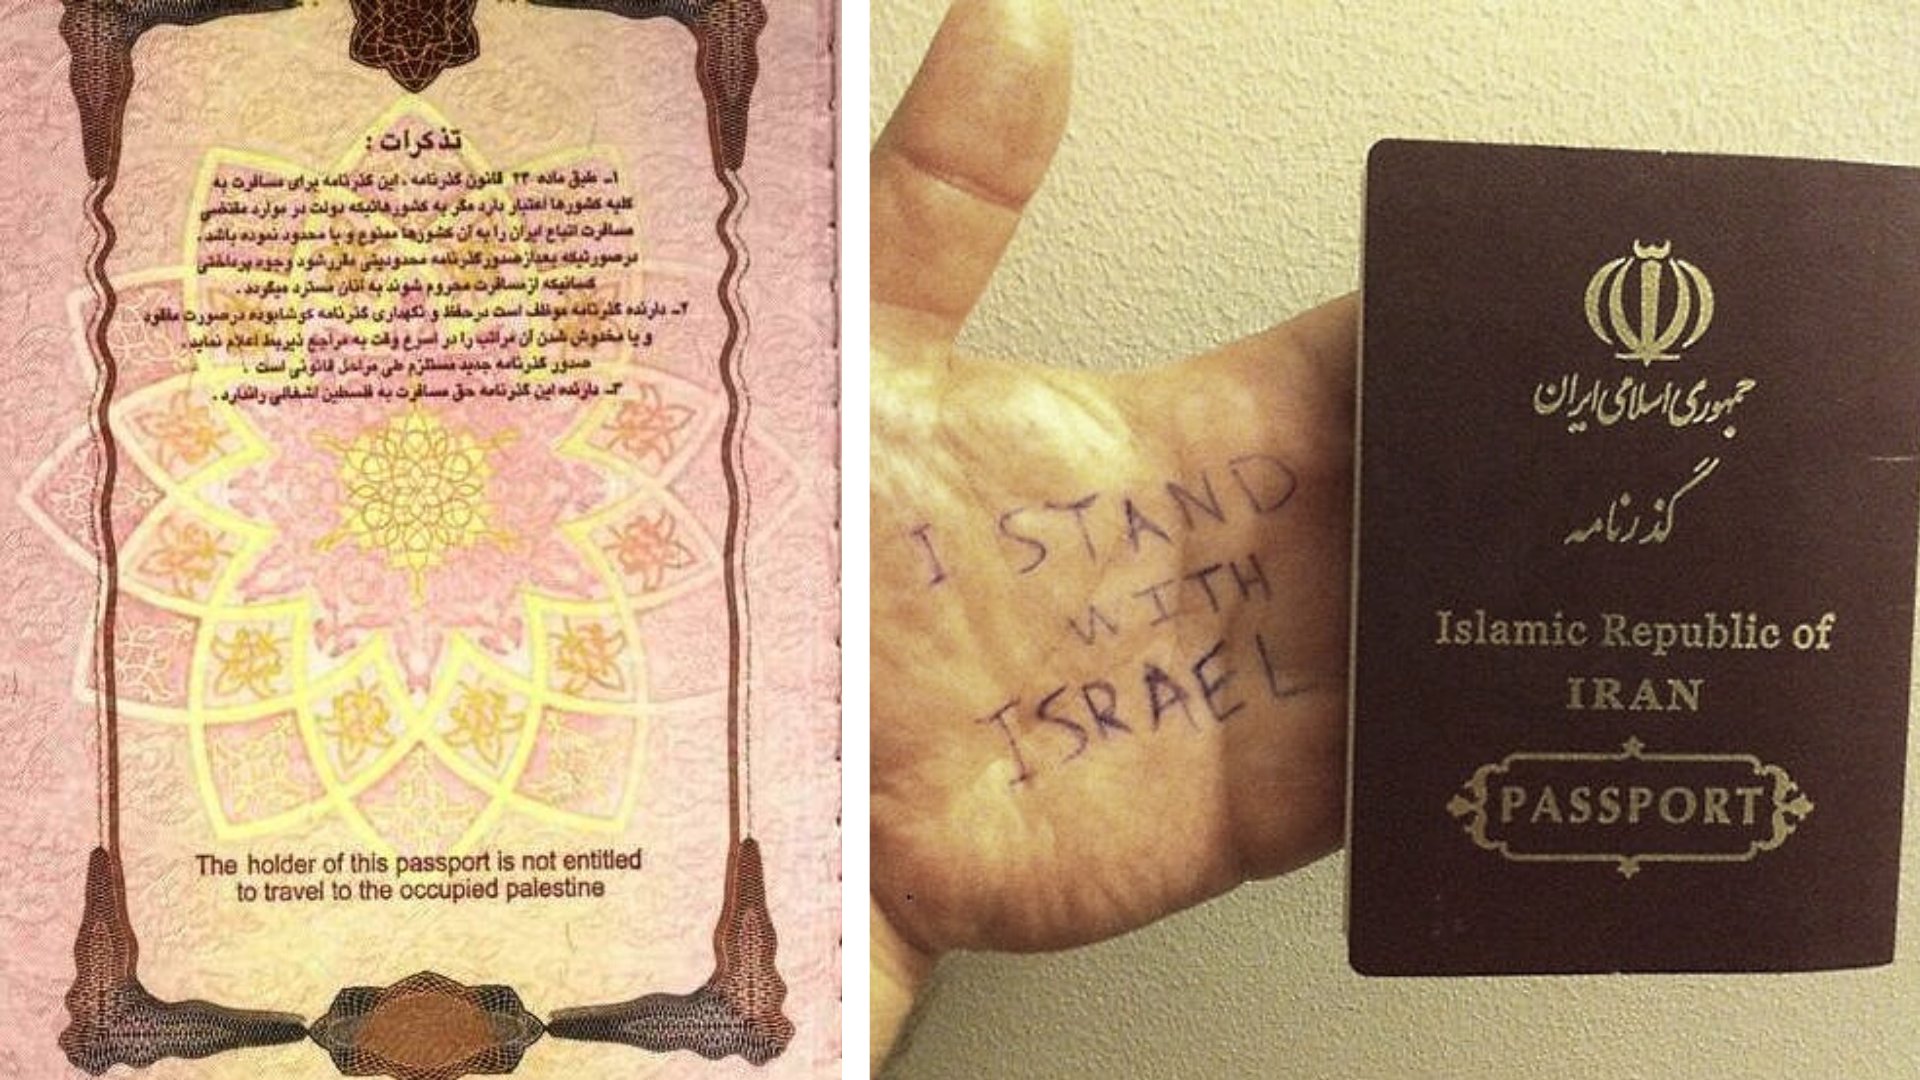 تذکرات :
۱ـ طبق ماده ۲۳ قانون گذرنامه ، این گذرنامه برای مسافرت به
کلیه کشورها اعتبار دارد مگر به کشورهائیکه دولت در موارد مقتضی
مسافرت اتباع ایران را به آن کشورها ممنوع و یا محدود نموده باشد .
درصورتیکه بعدازصدورگذرنامه محدودیتی مقررشود وجوه پرداختی
کسانیکه ازمسافرت محروم شوند به آنان مسترد میگردد .
۲ـ دارنده گذرنامه موظف است درحفظ و نگهداری گذرنامه کوشابوده درصورت مفقود
و یا مخدوش شدن آن مراتب را در اسرع وقت به مراجع ذیربط اعلام نماید .
صدور گذرنامه جدید مستلزم طی مراحل قانونی است .
۳ـ دارنده این گذرنامه حق مسافرت به فلسطین اشغالی راندارد .
The holder of this passport is not entitled
to travel to the occupied palestine
I STAND
WITH
ISRAEL
جمهوری اسلامی ایران
گذرنامه
Islamic Republic of
IRAN
PASSPORT